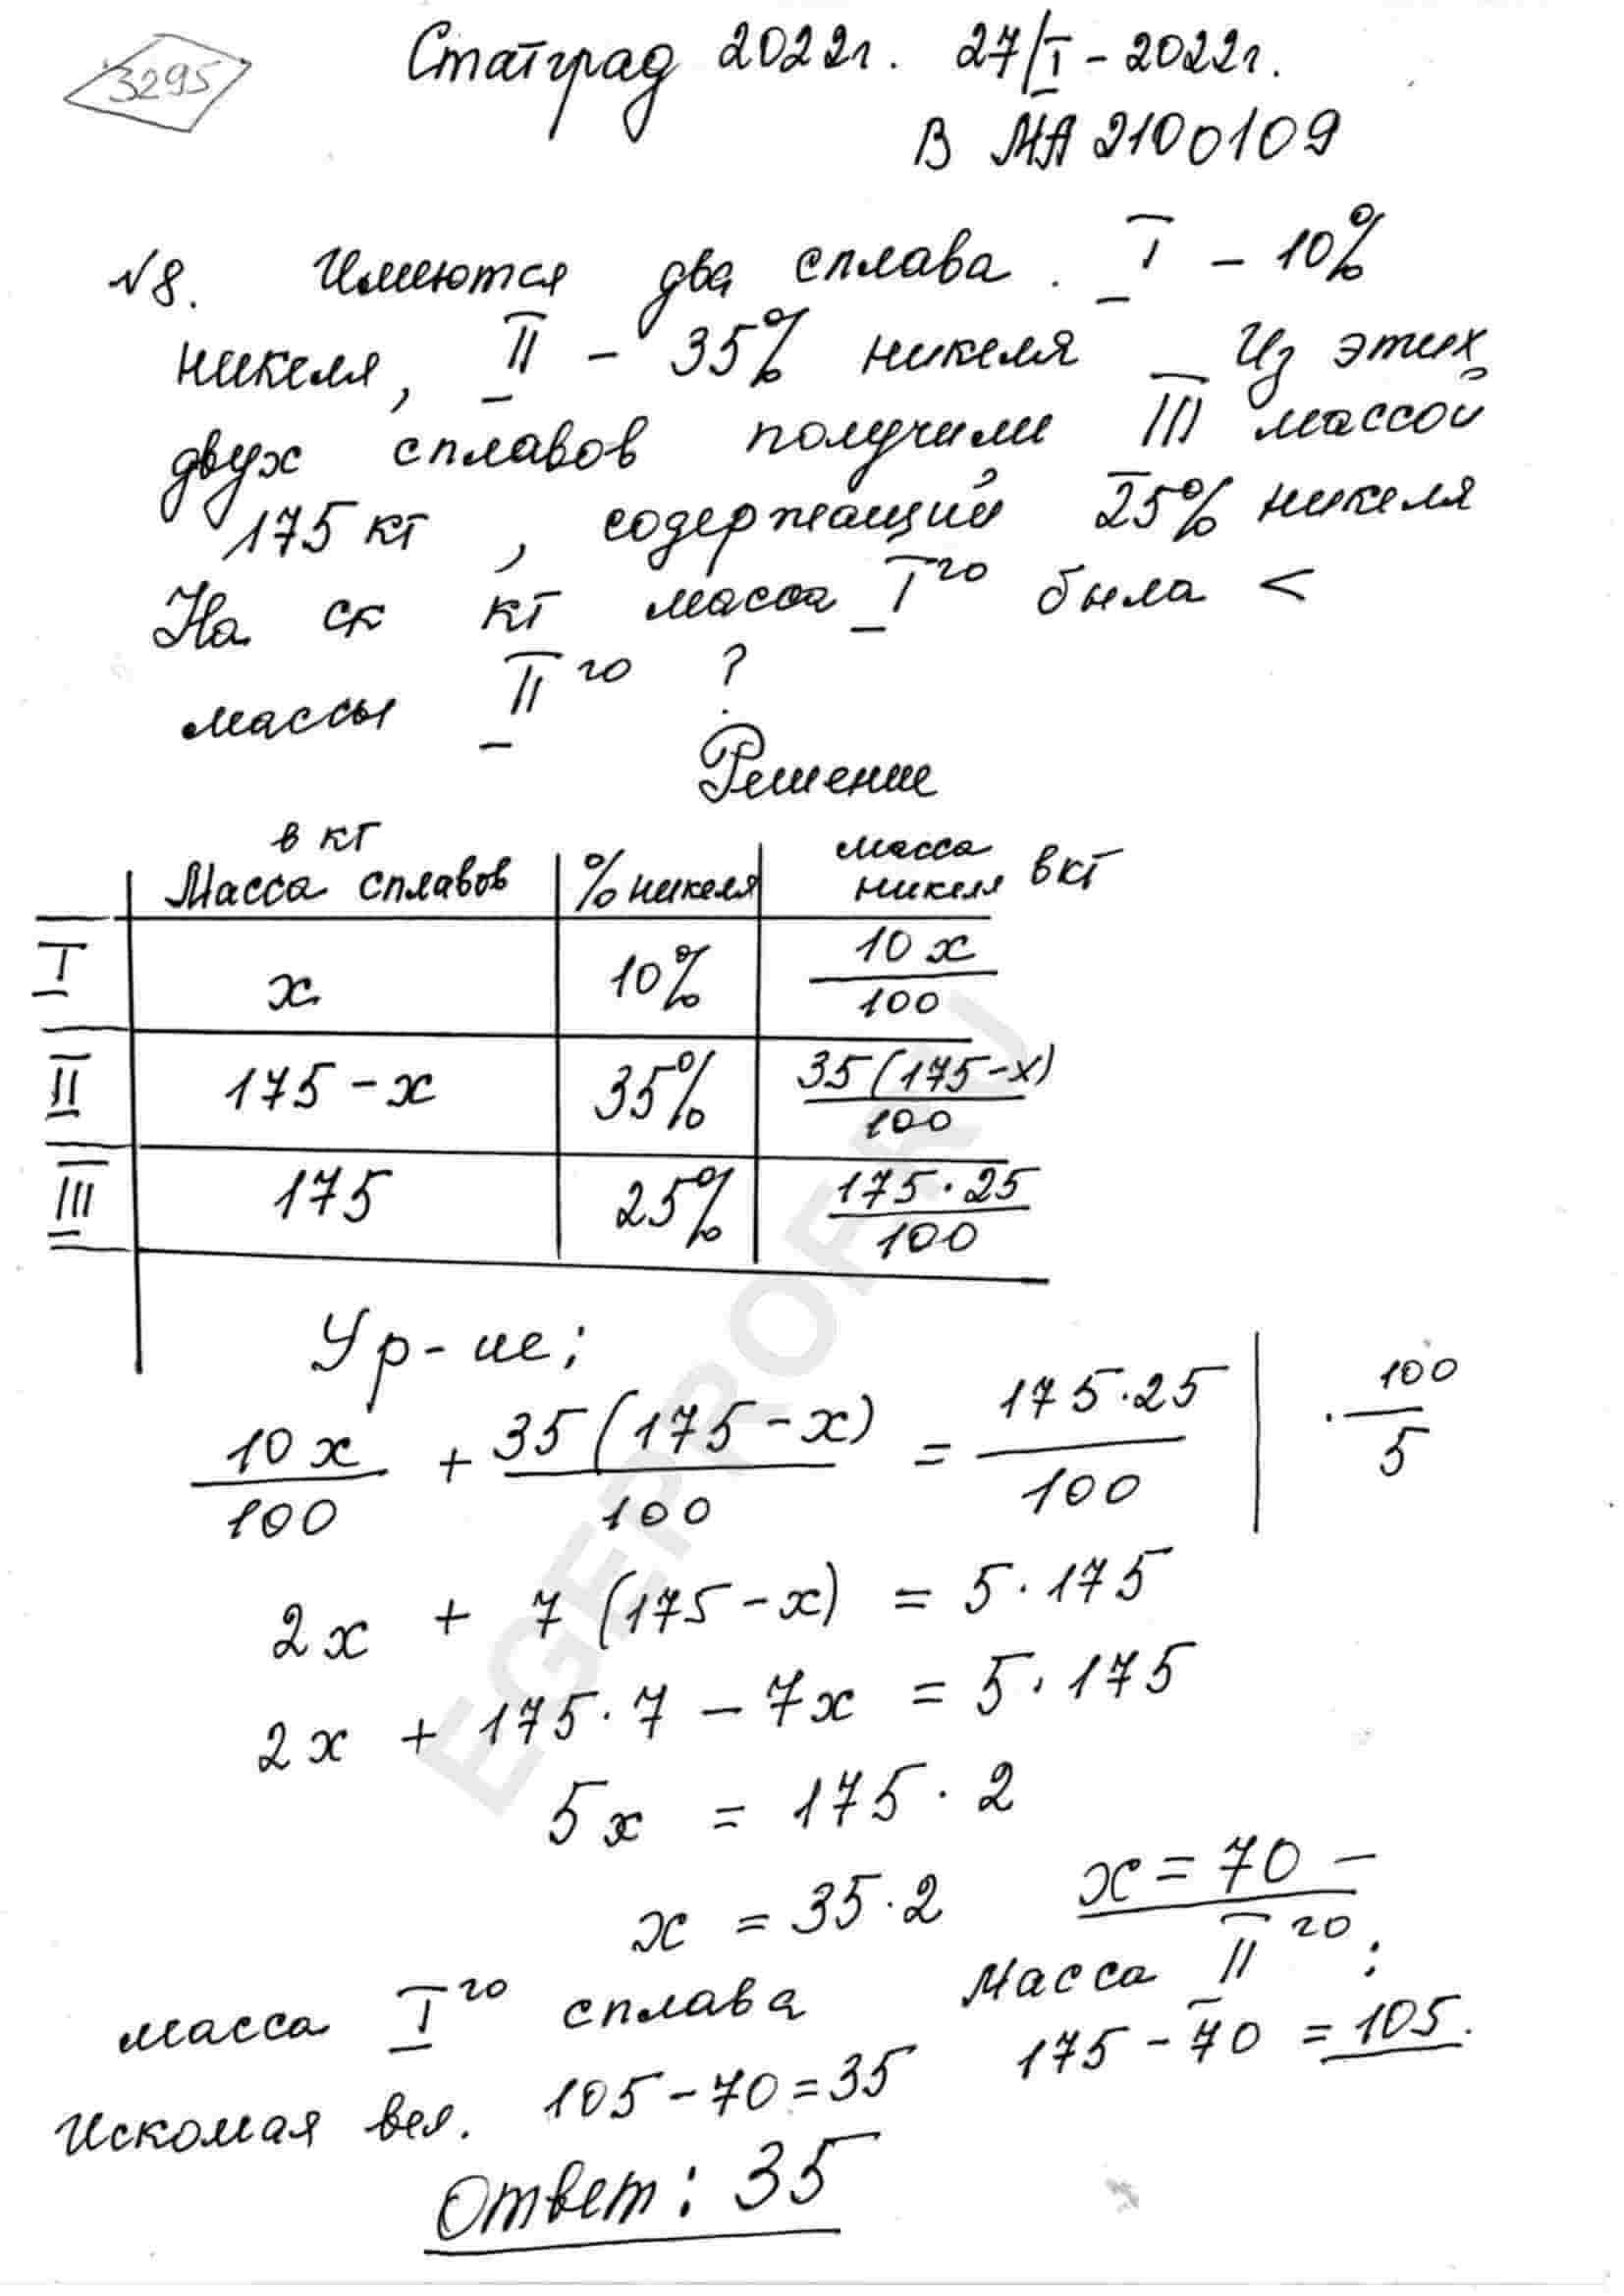 3295
Статград 2022г. 27/I-2022г.
В МА 2100109
№8. Имеются два сплава. I – 10%
никеля, II – 35% никеля Из этих
двух сплавов получили III массой
175 кг, содержащий 25% никеля
На ск кг масса I го была <
массы II го ?
Решение
в кг
Масса сплавов % никеля масса никеля в кг
I x 10% 10x/100
II 175-x 35% 35(175-x)/100
III 175 25% 175·25/100
Ур-ие:
10x/100 + 35(175-x)/100 = 175·25/100 | ·100/5
2x + 7(175-x) = 5·175
2x + 175·7 - 7x = 5·175
5x = 175·2
x = 35·2 x = 70 –
масса I го сплава Масса II го:
175-70 = 105.
Искомая вел. 105-70=35
Ответ: 35
EGEPROF.RU